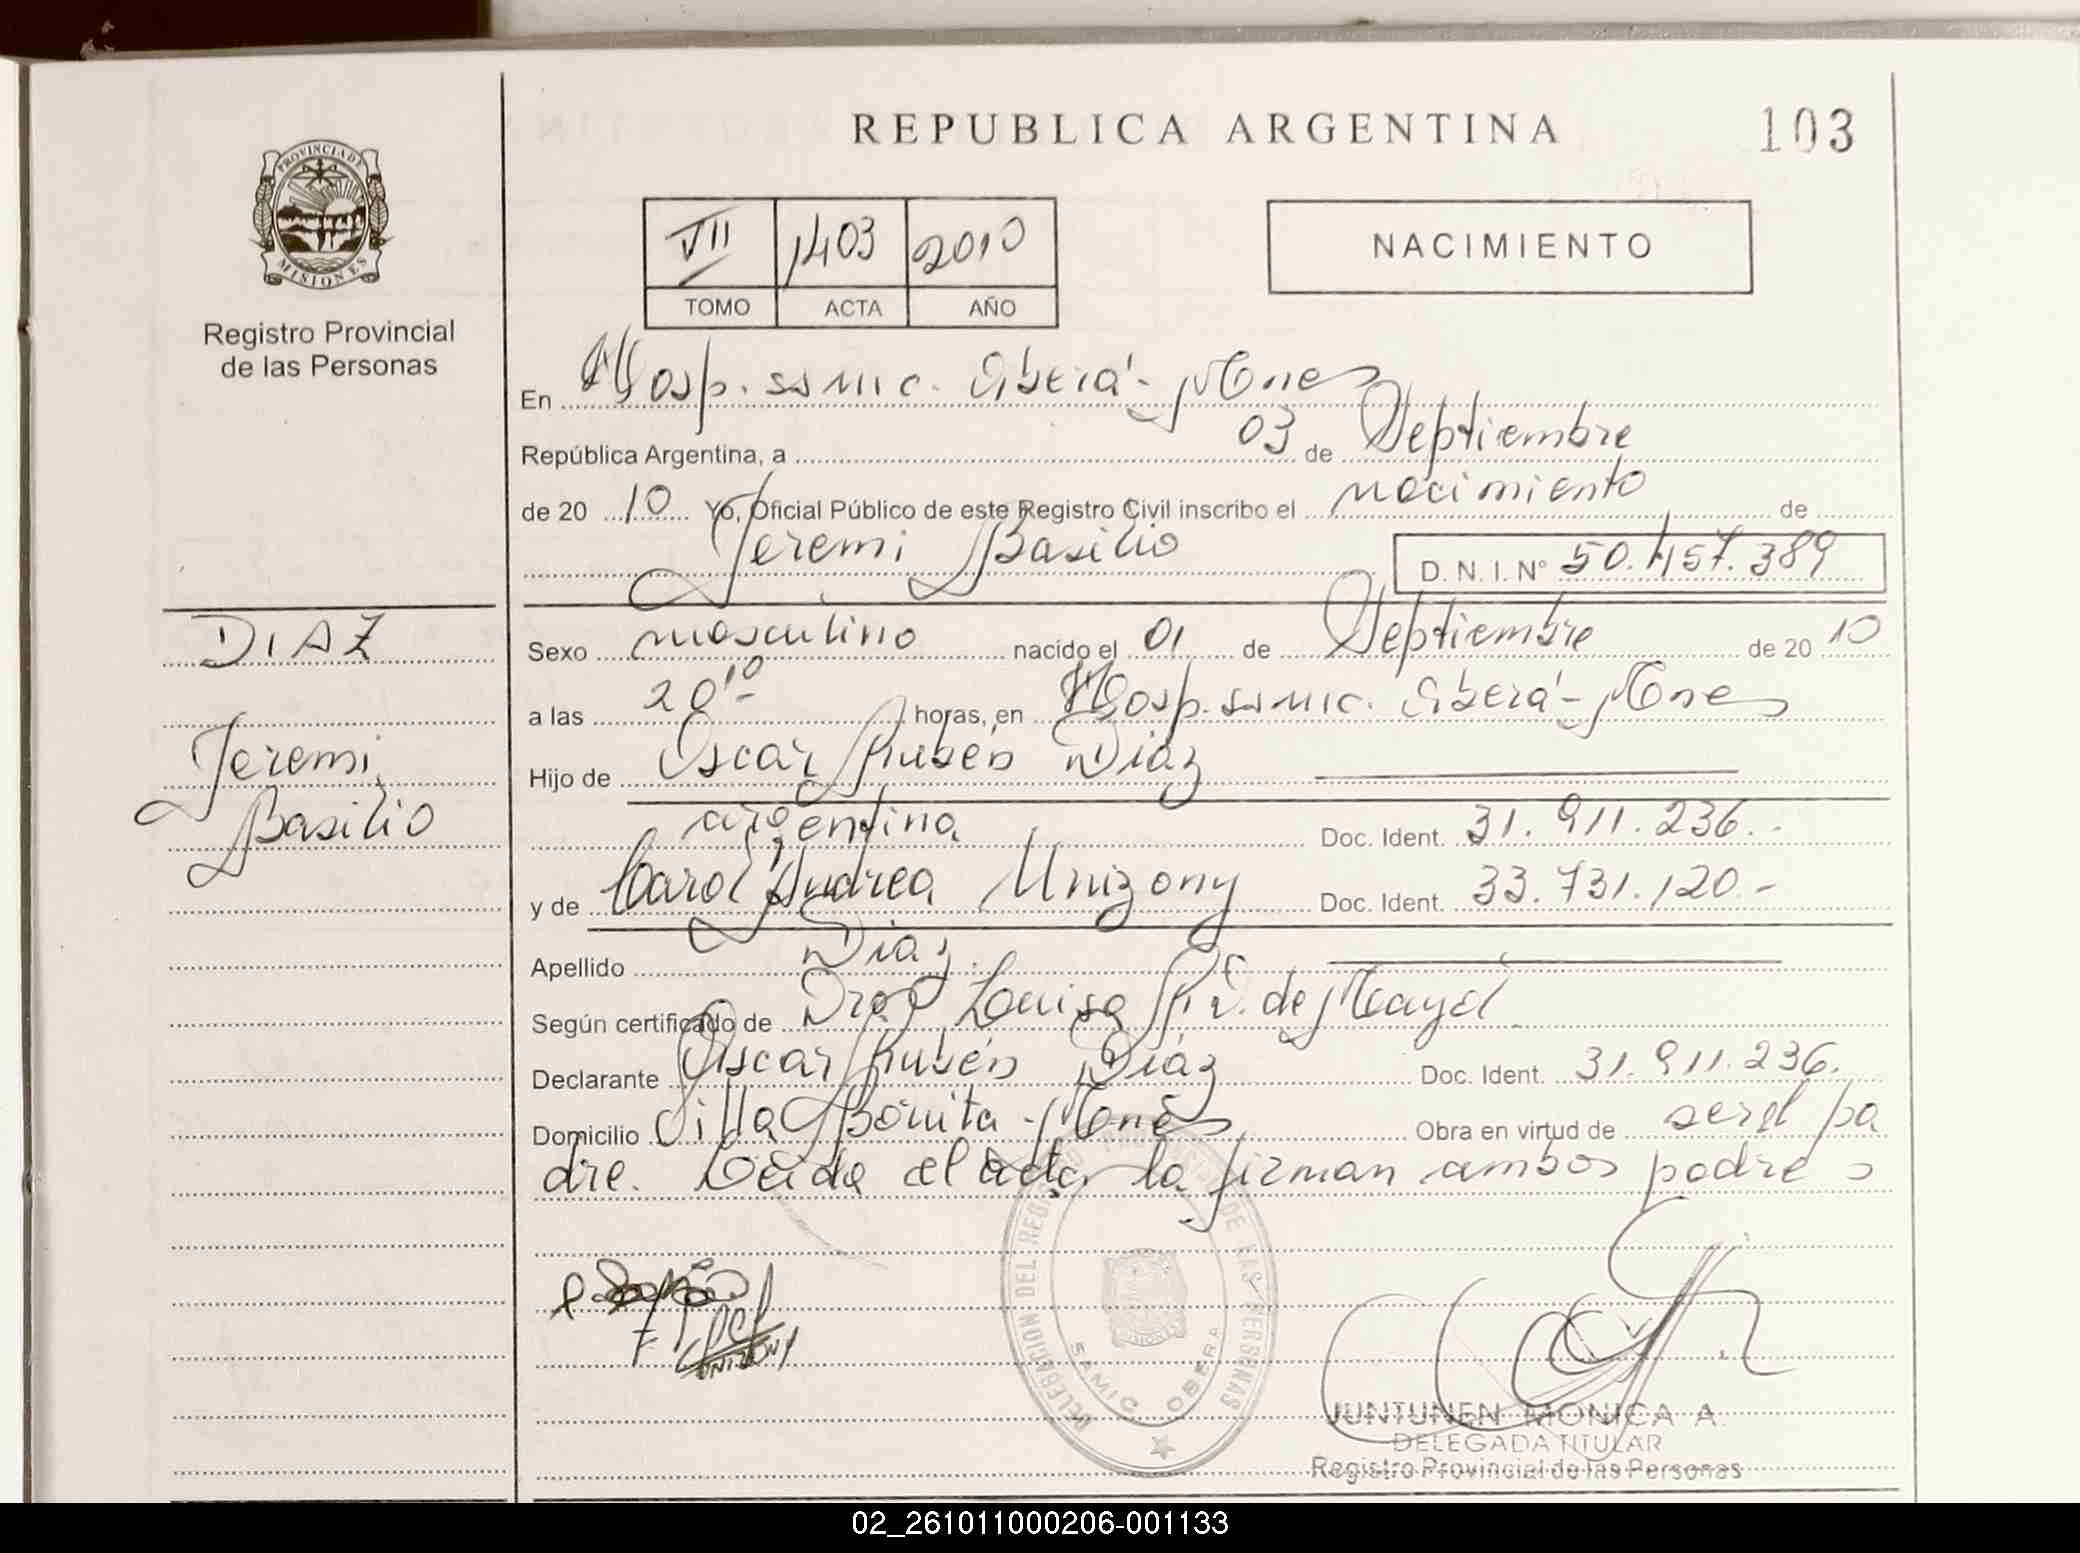 REPUBLICA ARGENTINA
103
PROVINCIA DE
MISIONES
Registro Provincial
de las Personas
VII 1403 2010
TOMO ACTA AÑO
NACIMIENTO
En Hosp. ssmic. Oberá - Mnes
República Argentina, a 03 de Septiembre
de 20 10 Yo, Oficial Público de este Registro Civil inscribo el nacimiento de
Jeremi Basilio
D. N. I. N° 50.457.389
DIAZ
Jeremi
Basilio
Sexo masculino nacido el 01 de Septiembre de 20 10
a las 20 10 horas, en Hosp. ssmic. Oberá - Mnes
Hijo de Oscar Rubén Diaz
argentina Doc. Ident. 31.911.236.-
y de Carol Andrea Unizony Doc. Ident. 33.731.120.-
Apellido Diaz.
Según certificado de Dra Louisa de Mayol
Declarante Oscar Rubén Diaz Doc. Ident. 31.911.236.
Domicilio Villa Bonita - Mnes Obra en virtud de ser el pa
dre. Leida el acta, la firman ambos padres
UNIZONY
DELEGACION DEL REGISTRO PROVINCIAL DE LAS PERSONAS
SAMIC OBERA
JUNTUNEN MONICA A.
DELEGADA TITULAR
Registro Provincial de las Personas
02_261011000206-001133